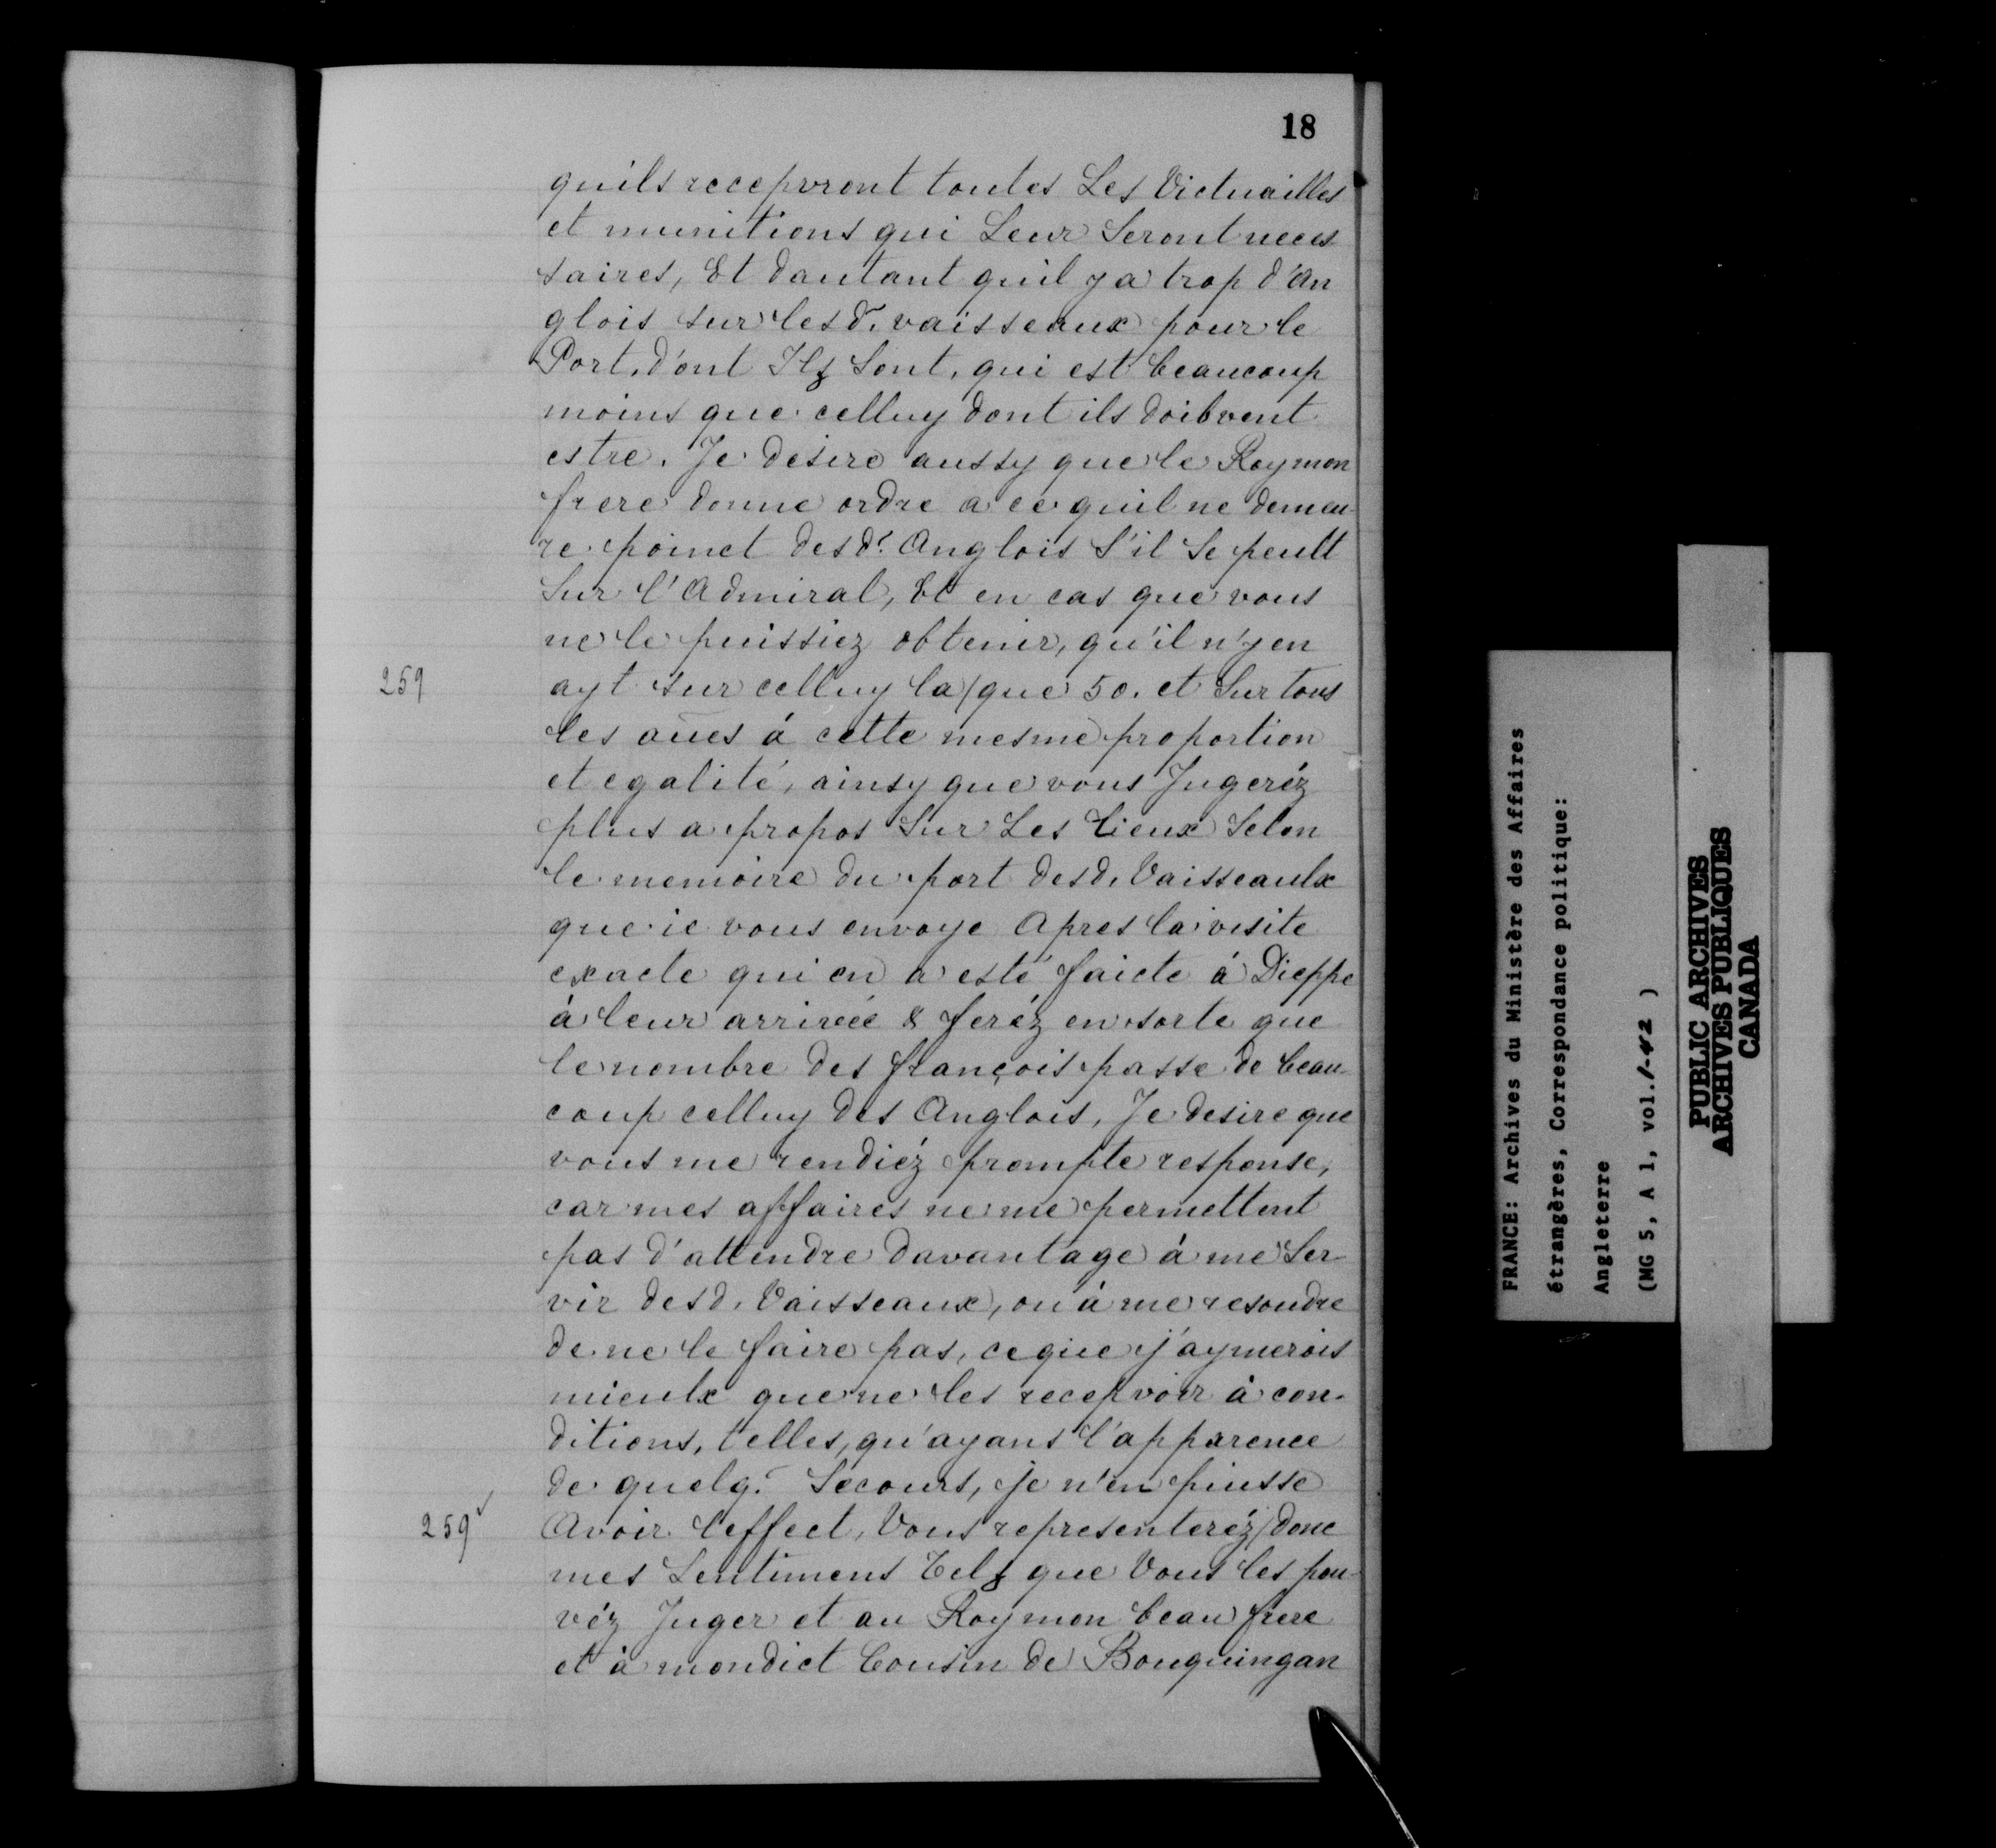 18
quils recepvront toutes Les Victuailles
et munitions qui Leur Seront neces
saires, Et dautant quil ya trop d'An
glois sur lesd. vaisseaux pour le
Port, d'ont Ilz Sont, qui est beaucoup
moins que celluy dont ils doibvent
estre. Je desire aussy que le Roy mon
frere donne ordre a ce quil ne demeu-
re poinct desd. Anglois S'il Se peult
Sur l'Admiral, Et en cas que vous
ne le puissiez obtenir, qu'il n'y en
259 ayt sur celluy la/que 50. et Sur tous
les aües à cette mesme proportion
et egalité, ainsy que vous Jugeréz
plus a propos Sur Les lieux Selon
le memoire du port desd. Vaisseaulx
que ie vous envoye Apres la visite
exacte qui en a esté faicte à Dieppe
à leur arrivée & feréz en sorte que
le nombre des françois passe de beau-
coup celluy des Anglois, Je desire que
vous me rendiéz prompte response,
car mes affaires ne me permettent
pas d'attendre davantage à me Ser-
vir desd. Vaisseaux, ou à me resoudre
de ne le faire pas, ce que j'aymerois
mieulx que ne les recepvoir à con-
ditions, telles, qu'ayans l'apparence
de quelq. Secours, je n'en puisse
259v Avoir l'effect, Vous representeréz/donc
mes Sentimens Telz que Vous les pou-
véz Juger et au Roy mon beau frere
et à mondict Cousin de Bouquingan
FRANCE: Archives du Ministère des Affaires
étrangères, Correspondance politique:
Angleterre
(MG 5, A 1, vol.1-42 )
PUBLIC ARCHIVES
ARCHIVES PUBLIQUES
CANADA